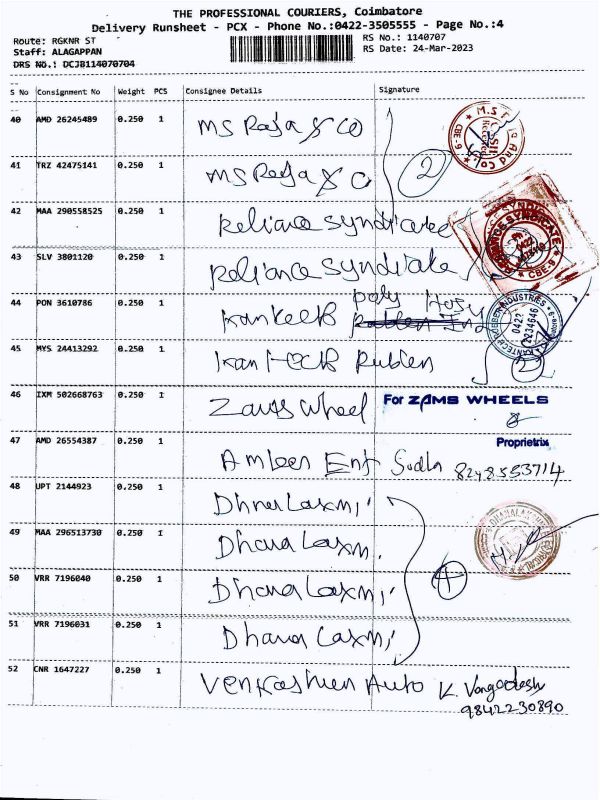 THE PROFESSIONAL COURIERS, Coimbatore
Delivery Runsheet - PCX - Phone No.:0422-3505555 - Page No.:4
Route: RGKNR ST
RS No.: 1140707
Staff: ALAGAPPAN
RS Date: 24-Mar-2023
DRS NO.: DCJB114070704
S No Consignment No Weight PCS Consignee Details Signature
40 AMD 26245489 0.250 1 MS Raja & Co
41 TRZ 42475141 0.250 1 MS Raja & Co
2
42 MAA 290558525 0.250 1 Reliance Syndicate
43 SLV 3801120 0.250 1 Reliance Syndicate
RELIANCE SYNDICATE
0422
CBE-9
44 PON 3610786 0.250 1 Poly
45 MYS 24413292 0.250 1
RUBBER INDUSTRIES
0422
2234646
2
46 IXM 502668763 0.250 1 Zams Wheel
For ZAMS WHEELS
Proprietrix
47 AMD 26554387 0.250 1 Ent Sudha 8248553714
48 UPT 2144923 0.250 1 Dhana Laxmi
49 MAA 296513730 0.250 1 Dhana Laxmi
50 VRR 7196040 0.250 1 Dhana Laxmi
4
51 VRR 7196031 0.250 1 Dhana Laxmi
52 CNR 1647227 0.250 1 Auto K.
9842230890